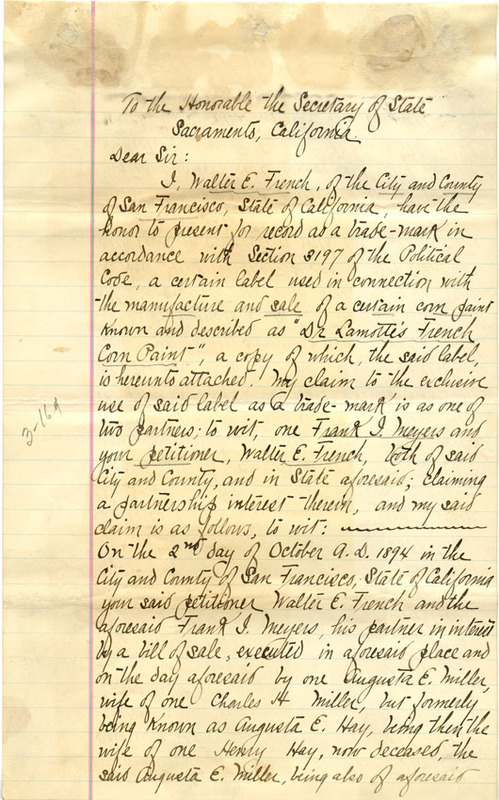 To the Honorable the Secretary of State
Sacramento, California.
Dear Sir:
I, Walter E. French, of the City and County
of San Francisco, State of California, have the
honor to present for record as a trade-mark in
accordance with Section 3197 of the Political
Code, a certain label used in connection with
the manufacture and sale of a certain corn paint
known and described as "Dr Lamotte's French
Corn Paint", a copy of which, the said label,
is hereunto attached. My claim to the exclusive
use of said label as a trade-mark is as one of
two partners; to wit, one Frank I. Meyers and
your petitioner, Walter E. French, both of said
City and County, and in State aforesaid; claiming
a partnership interest therein, and my said
claim is as follows, to wit:
On the 2nd day of October A.D. 1894 in the
City and County of San Francisco, State of California
your said petitioner Walter E. French and the
aforesaid Frank I. Meyers, his partner in interest
by a bill of sale, executed in aforesaid place and
on the day aforesaid by one Augusta E. Miller,
wife of one Charles H Miller, but formerly
being known as Augusta E. Hay, being then the
wife of one Henry Hay, now deceased, the
said Augusta E. Miller, being also of aforesaid